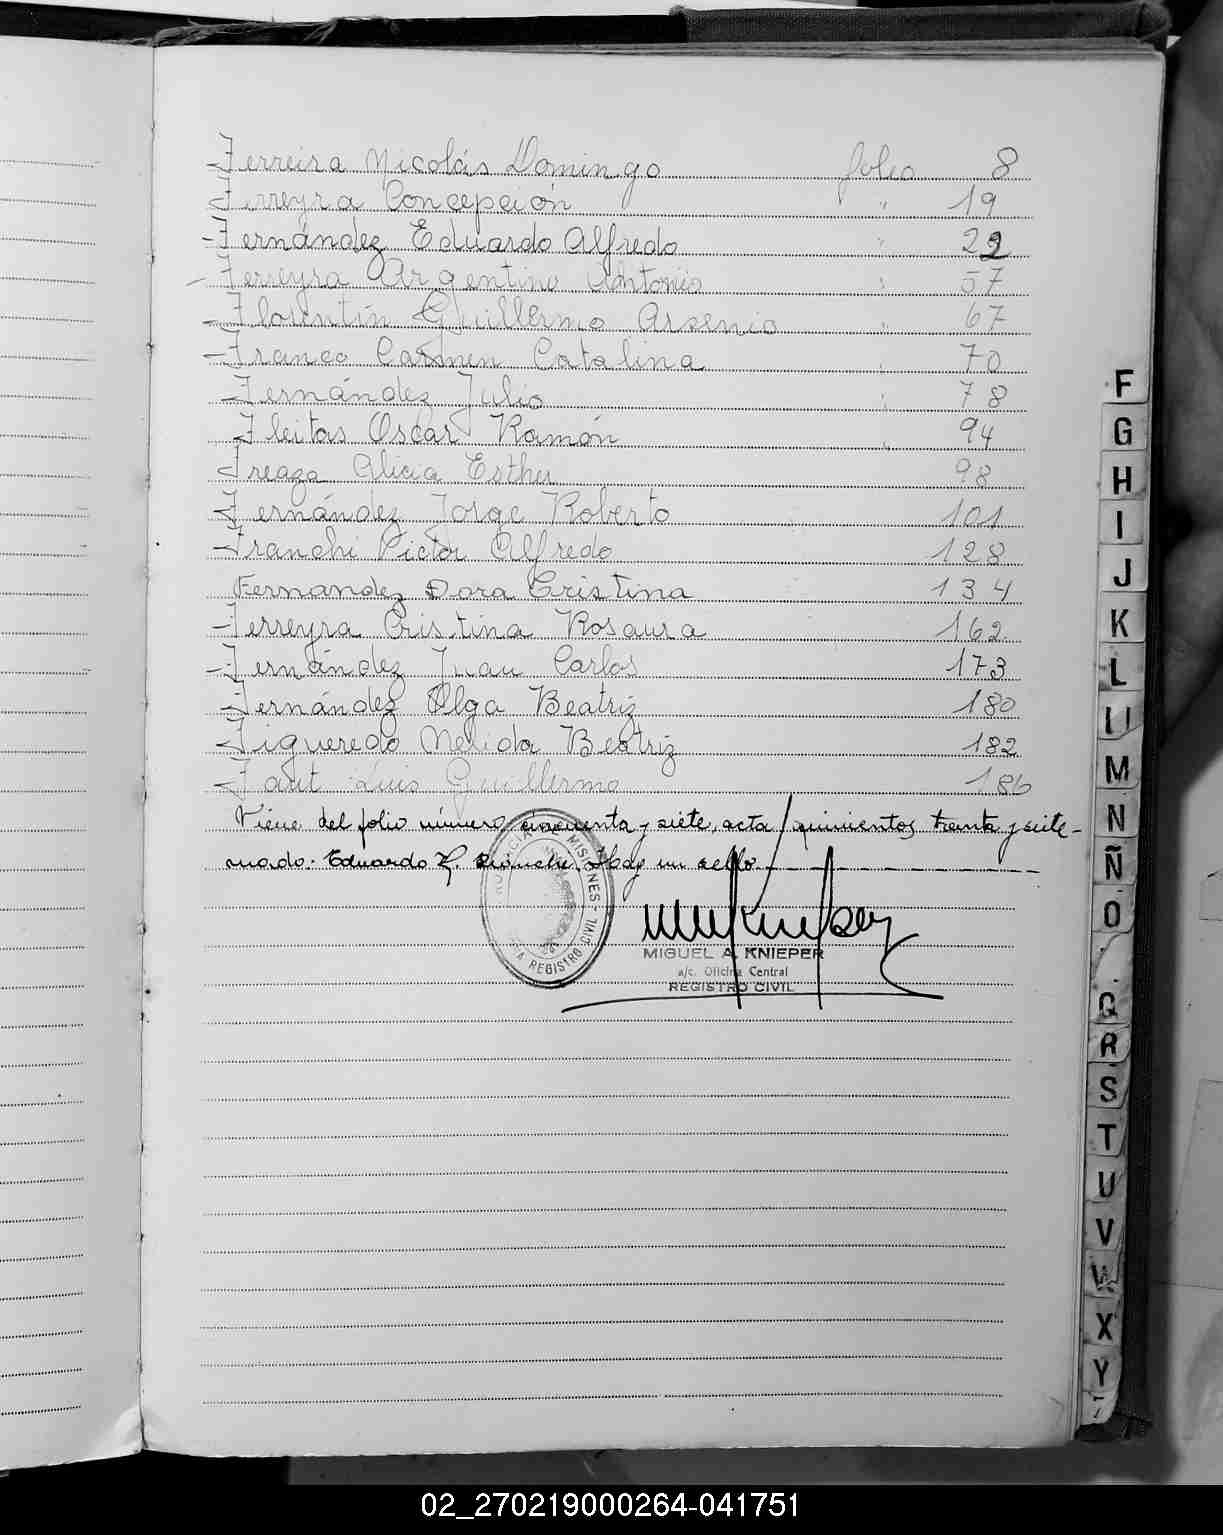 Ferreira Nicolás Domingo folio 8
Ferreyra Concepción " 19
Fernández Eduardo Alfredo " 22
Ferreyra Argentino Antonio " 57
Florentín Guillermo Arsenio " 67
Franco Carmen Catalina " 70
Fernández Julio " 78
Fleitas Oscar Ramón " 94
Freaza Alicia Esther 98
Fernández Jorge Roberto 101
Franchi Victor Alfredo 128
Fernandez Dora Cristina 134
Ferreyra Cristina Rosaura 162
Fernández Juan Carlos 173
Fernández Olga Beatriz 180
Figueredo Nelida Beatriz 182
Faut Luis Guillermo 186
Viene del folio número cincuenta y siete, acta quinientos treinta y siete-
mado. Eduardo Hay un sello
MISIONES
REGISTRO CIVIL
MIGUEL A. KNIEPER
a/c. Oficina Central
REGISTRO CIVIL
F
G
H
I
J
K
L
M
N
Ñ
O
Q
R
S
T
U
V
W
X
Y
02_270219000264-041751